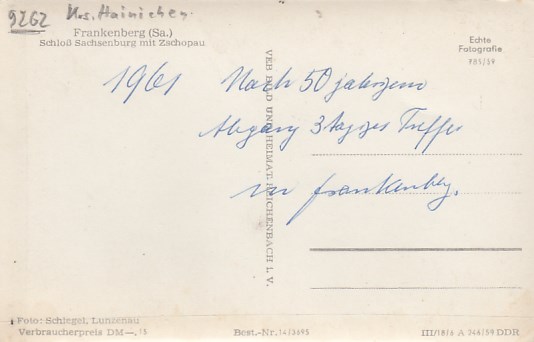 9262 Krs. Hainichen
Frankenberg (Sa.)
Schloß Sachsenburg mit Zschopau
Echte
Fotografie
P85/59
1961 Nach 50 jährigem
Abgang 3 tagiges Treffen
in Frankenberg.
VEB BILD UND HEIMAT REICHENBACH I. V.
Foto: Schlegel, Lunzenau
Verbraucherpreis DM —,15
Best.-Nr. 14/3695
III/18/6 A 246/59 DDR